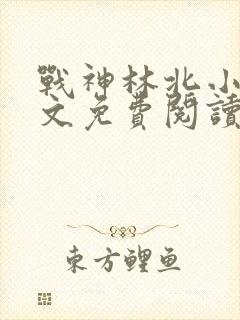 戰神林北小
文免費閱讀
東方鯉鱼